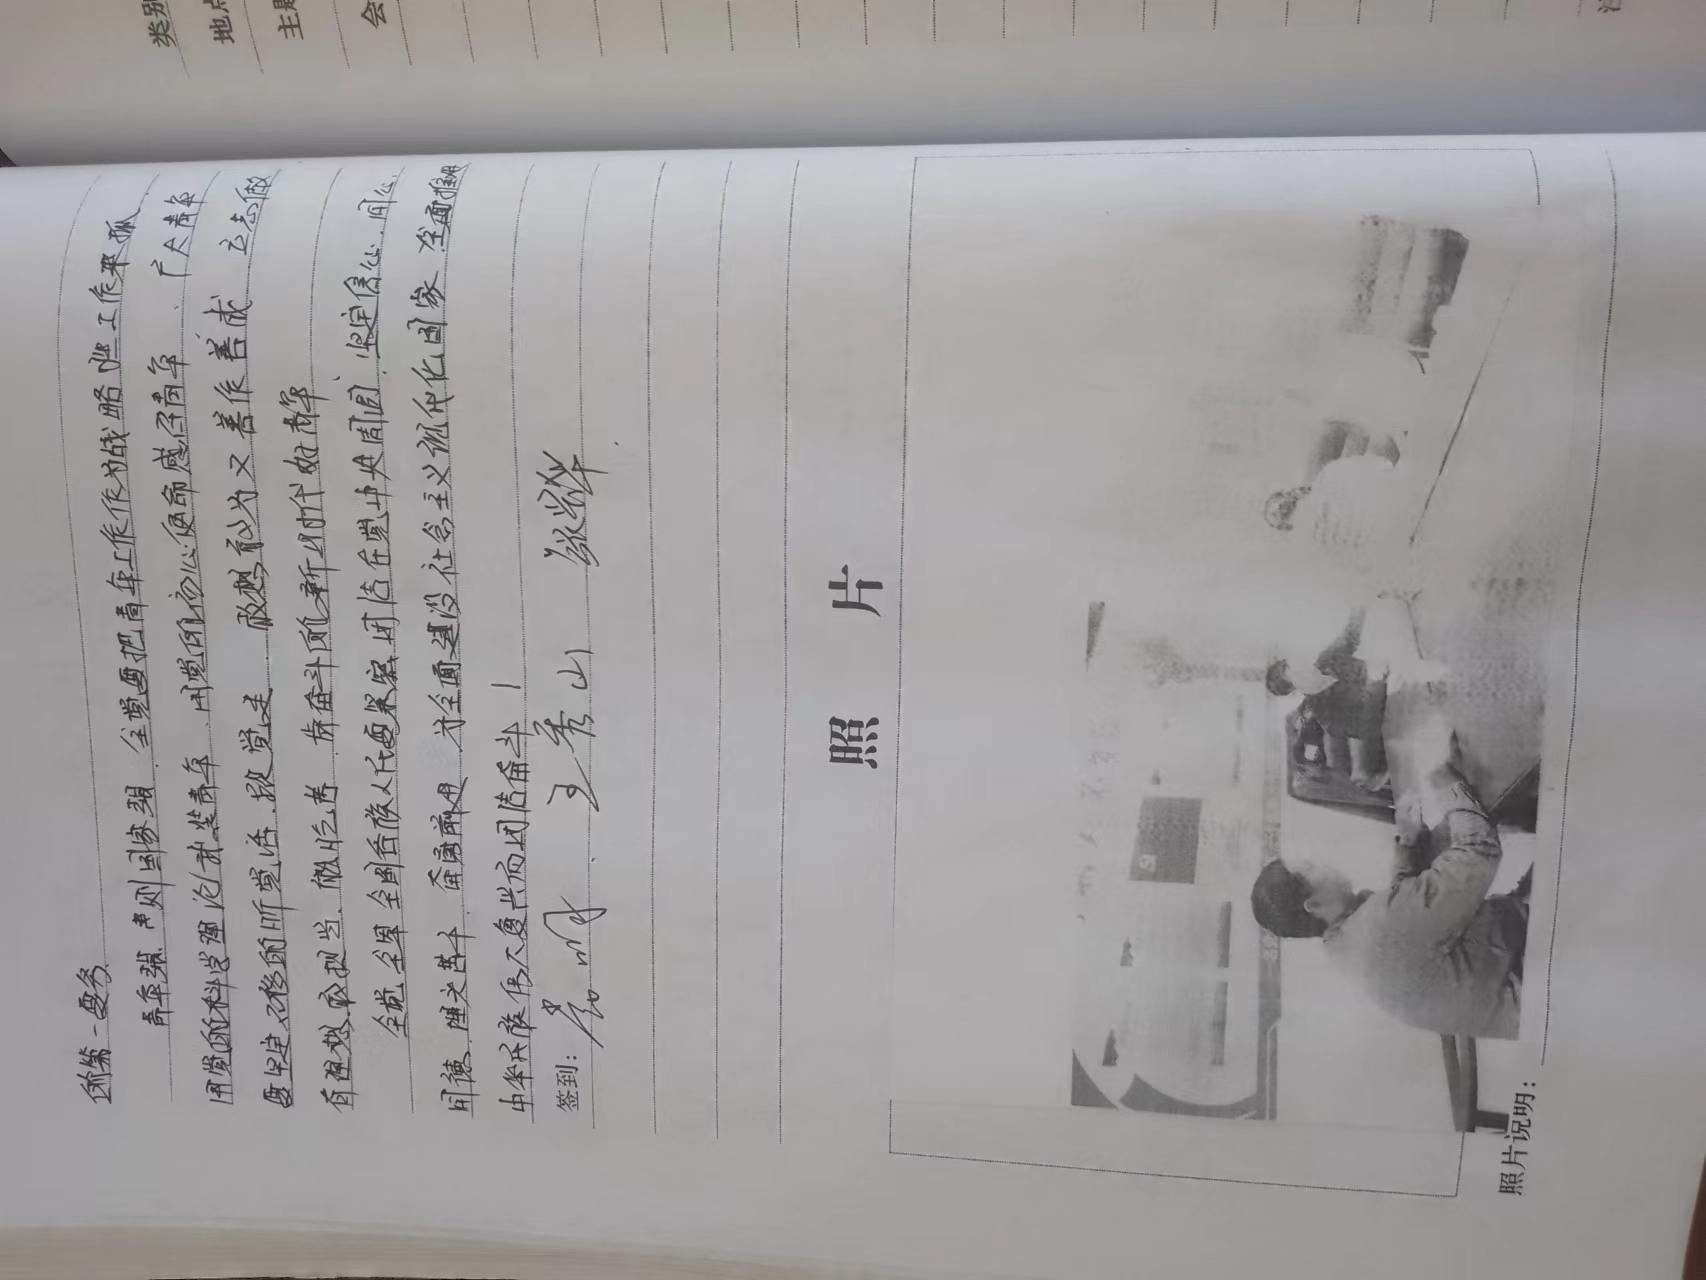 的第一要务
青年强，则国家强．全党要把青年工作作为战略性工作来抓
用党的科学理论武装青年．用党的初心使命感召青年．广大青年
要坚定不移的听党话．跟党走 敢想敢为又善作善成 立志做
有理想．敢担当．能吃苦．肯奋斗的新时代好青年
全党 全军 全国各族人民要紧密团结在党中央周围，坚定信心．同心
同德．埋头苦干．奋勇前进．为全面建设社会主义现代化国家 全面推进
中华民族伟大复兴而团结奋斗！
签到： 王秀山
照 片
照片说明：
类别
地点
主题
会